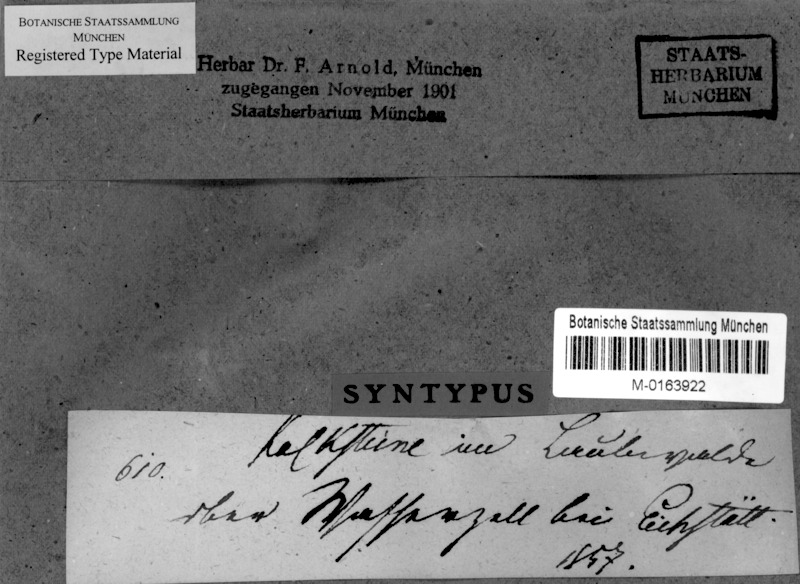 BOTANISCHE STAATSSAMMLUNG
MÜNCHEN
Registered Type Material
Herbar Dr. F. Arnold, München
zugegangen November 1901
Staatsherbarium München
STAATS-
HERBARIUM
MÜNCHEN
Botanische Staatssammlung München
M-0163922
SYNTYPUS
610. Kalksteine im Laubwalde
ober Wasserzell bei Eichstätt.
1857.